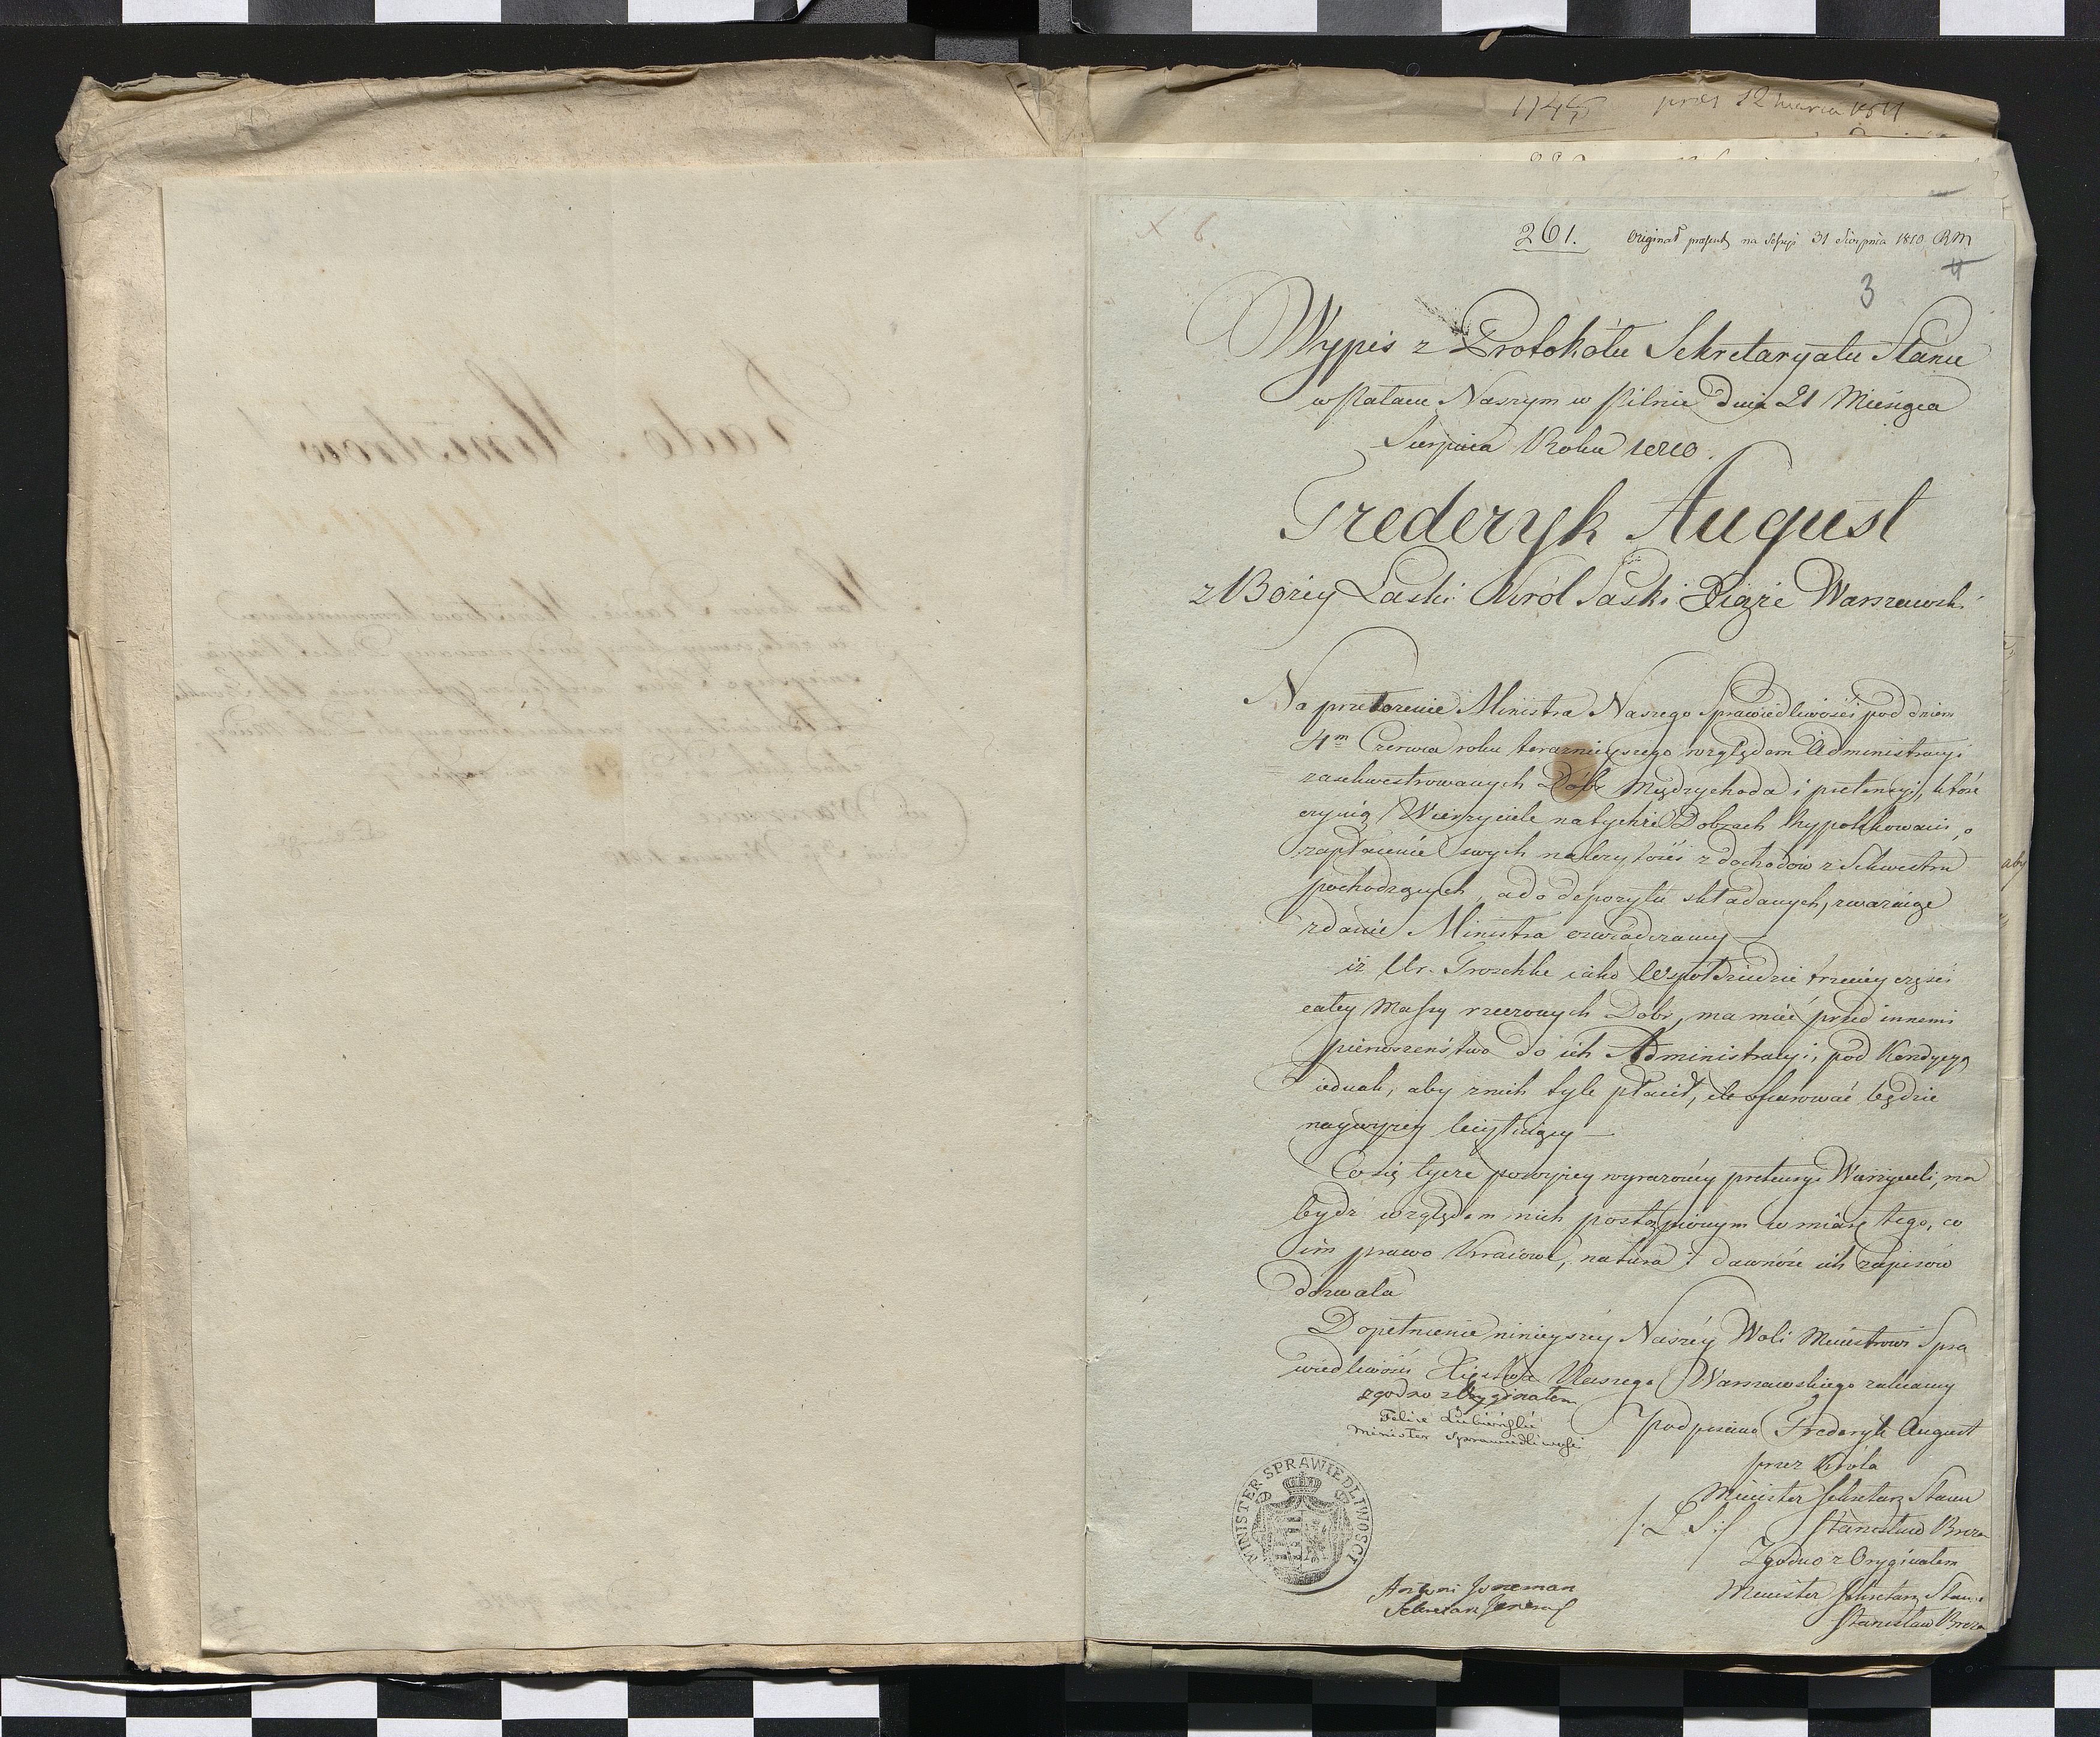 1745 prez 12 marca 1811
261. Originał prezent na Sessyi 31 Sierpnia 1810 RM
4
3
Wypis z Protokółu Sekretaryatu Stanu
w Pałacu Naszym w Pilnic Dnia 21 Miesiąca
Sierpnia Roku 1810.
Frederyk August
z Bożey Łaski Król Saski Xiąże Warszawski
Na przełożenie Ministra Naszego Sprawiedliwości pod dniem
4m Czerwca roku teraznieyszego względem Administracyi
zasekwestrowanych Dóbr Międzychoda i pretensyi, które
czynią Wierzyciele na tychże Dobrach hypotekowani, o
zapłacenie swych należytości z dochodów z Sekwestru
pochodzących, a do depozytu składanych, zważaiąc
zdanie Ministra oświadczamy —
iż Ur. Troschke iako Współdziedzic trzeciey części
całey Massy rzeczonych Dóbr, ma mieć przed innemi
pierwszeństwo do ich Administracyi, pod Kondycyą
iednak, aby z nich tyle płacił, ile ofiarować będzie
naywyżey licytuiący —
Co się tycze powyżey wyrażoney pretensyi Wierzycieli, ma
bydź względem nich postąpionym w miarę tego, co
im prawo Kraiowe, natura i dawność ich zapisów
dozwala
Dopełnienie ninieyszey Naszéy Woli Ministrowi Spra
wiedliwości Xięstwa Naszego Warszawskiego zalecamy
zgodno z Oryginałem
Felix Łubieński
Minister Sprawiedliwości
podpisano Frederyk August
przez Króla
Minister Sekretarz Stanu
/: L S :/ Stanisław Breza
Zgodno z Oryginałem
Minister Sekretarz Stanu
Stanisław Breza
MINISTER SPRAWIEDLIWOSCI
Sekretarz Jeneral
aby